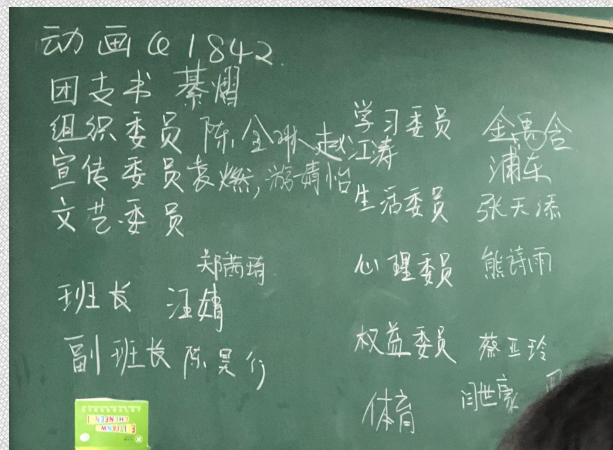 动画@1842
团支书 綦熠
组织委员 陈全琳 赵江涛
宣传委员 袁燃,游婧怡
文艺委员
郑茜琦
班长 汪婧
副班长 陈昊行
学习委员 金禹含
浦东
生活委员 张天添
心理委员 熊诗雨
权益委员 蔡亚玲
体育 闫世豪